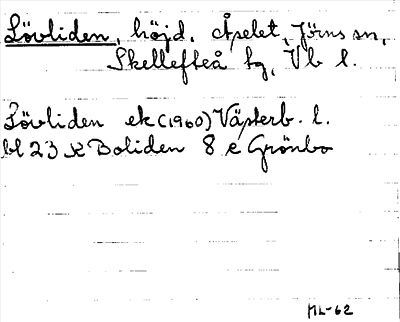 Lövliden, höjd, Åselet, Jörns sn,
Skellefteå tg, Vb l.
Lövliden ek (1960) Västerb. l.
bl 23 K Boliden 8 e Grönbo
ML-62